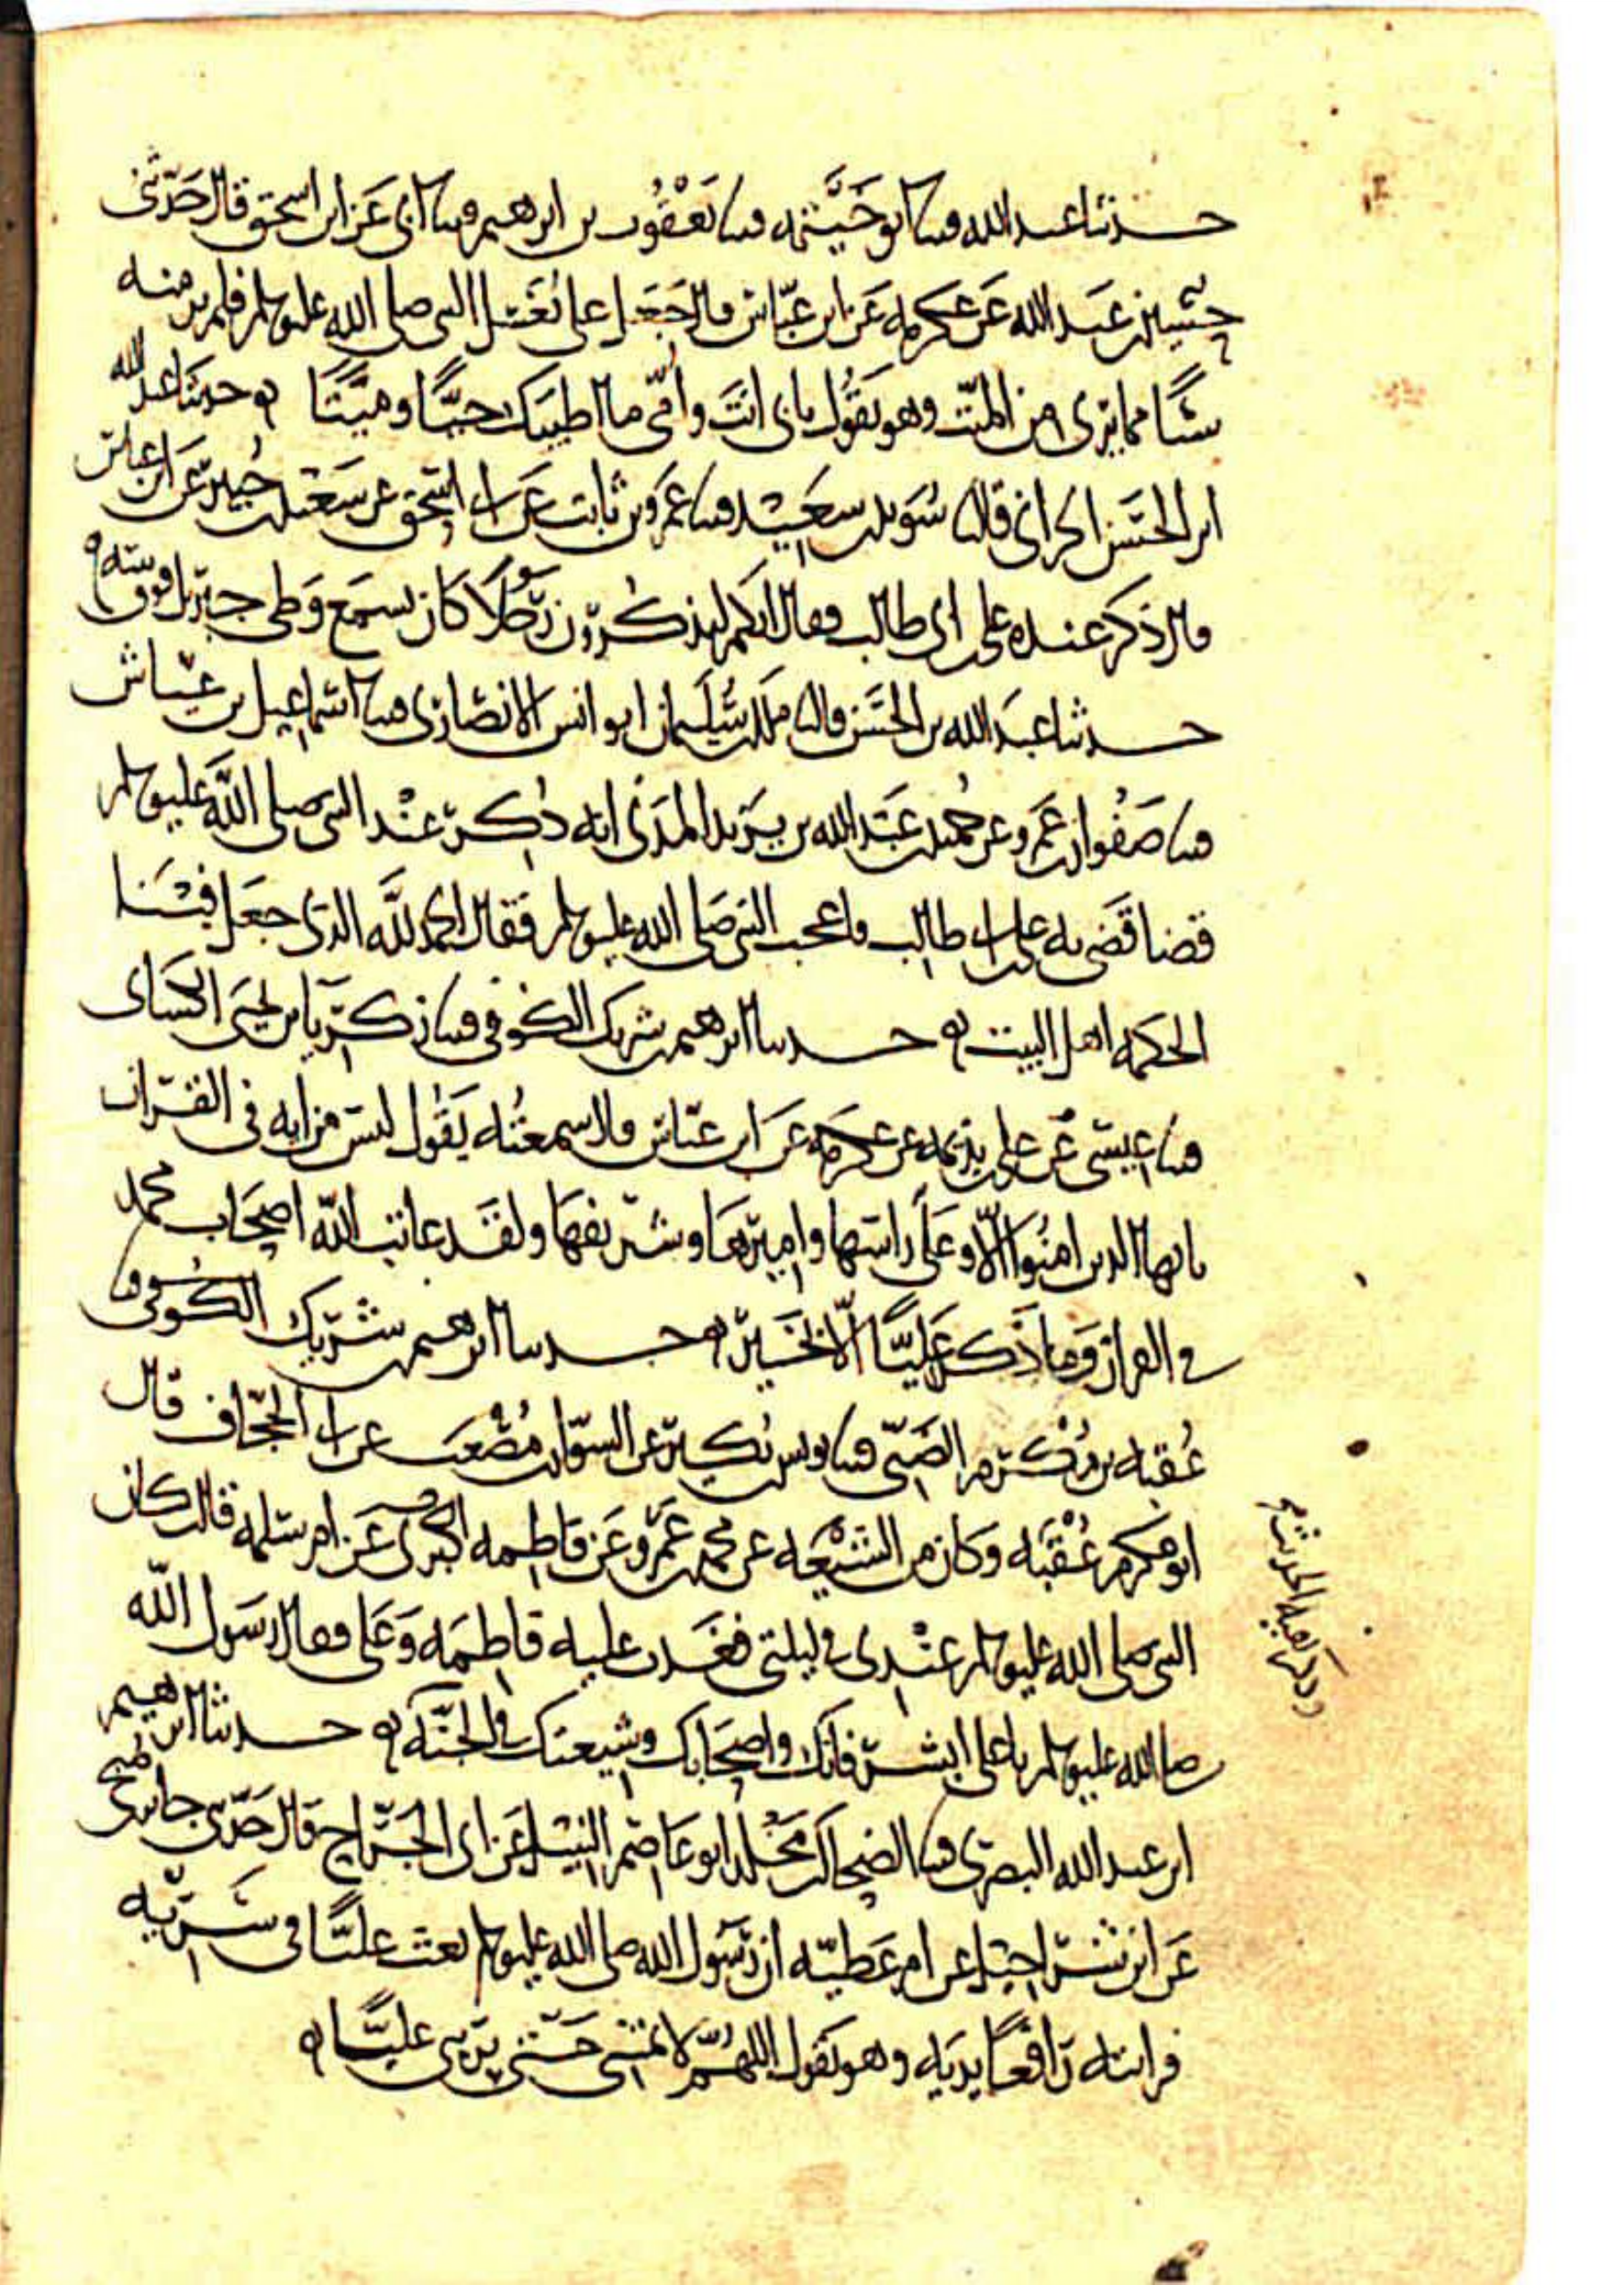 حدثنا عبد الله قثنا ابو خيثمه قثنا يعقوب بن ابرهيم قثنا ابي عن ابن اسحق قال حدثني
حسين بن عبد الله عن عكرمه عن ابن عباس قال جعل علي يغسل النبي صلى الله عليه وسلم فلم ير منه
شيئا مما يرى من الميت وهو يقول بابي انت وامي ما اطيبك حيا وميتا ه حدثنا عبد الله
ابن الحسن الحراني قال نا سويد بن سعيد قثنا عمرو بن ثابت عن ابي اسحق عن سعيد بن جبير عن ابن عباس
قال ذكر عنده علي بن ابي طالب فقال انكم لتذكرون رجلا كان يسمع وطي جبريل فوق بيته ه
حدثنا عبد الله بن الحسن قال نا ملك بن سليمان ابو انس الانصاري قثنا اسماعيل بن عياش
قثنا صفوان بن عمرو عن حميد بن عبد الله بن يزيد المدني انه ذكر عند النبي صلى الله عليه وسلم
قضا قضى به علي بن ابي طالب فاعجب النبي صلى الله عليه وسلم فقال الحمد لله الذي جعل فينا
الحكمه اهل البيت ه حدثنا ابرهيم بن شريك الكوفي قثنا زكريا بن يحيى الكساي
قثنا عيسى عن علي بن بذيمه عن عكرمه عن ابن عباس قال سمعته يقول ليس من ايه في القران
يايها الذين امنوا الا وعلي راسها واميرها وشريفها ولقد عاتب الله اصحاب محمد
في القران وما ذكر عليا الا بخير ه حدثنا ابرهيم بن شريك الكوفي قثنا
عقبه بن مكرم الضبي قثنا يونس بن بكير عن السوار بن مصعب عن ابي الجحاف قال
ابو مكرم عقبه وكان من الشيعه عن محمد بن عمرو عن فاطمه الكبرى عن ام سلمه قالت كان
النبي صلى الله عليه وسلم عندي في ليلتي فغدت عليه فاطمه وعلي فقال رسول الله
صلى الله عليه وسلم يا علي ابشر فانك واصحابك وشيعتك في الجنه ه حدثنا ابرهيم
ابن عبد الله البصري قثنا الضحاك بن مخلد ابو عاصم النبيل عن ابي الجراح قال حدثني جابر بن صبح
عن ام شراحيل عن ام عطيه ان رسول الله صلى الله عليه وسلم بعث عليا في سريه
فرايته رافعا يديه وهو يقول اللهم لا تمتني حتى تريني عليا ه
وذكر بقيه الحديث